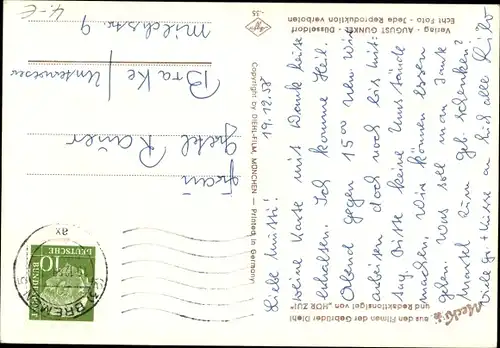 19.12.58
Liebe Mutti!
Deine Karte mit Dank heute
erhalten. Ich komme Heil.
Abend gegen 15 00 Uhr. Wir
arbeiten doch noch bis mit-
tag. Bitte keine Umstände
machen. Wir können essen
gehen. Was soll man Tante
zum geb. schenken?
Viele Gr. + Küsse an Euch alle
Frau
Gretel Rauer
Brake / Unterweser
Milchstr. 9
4.-E
Mecki
aus den Filmen der Gebrüder Diehl
und Redaktionsigel von „HÖR ZU!"
Copyright by DIEHL-FILM, MÜNCHEN — Printed in Germany
Verlag - AUGUST GUNKEL - Düsseldorf
Echt Foto - Jede Reproduktion verboten
Agfa
55
10
DEUTSCHE
BUNDESPOST
BREMEN
ax